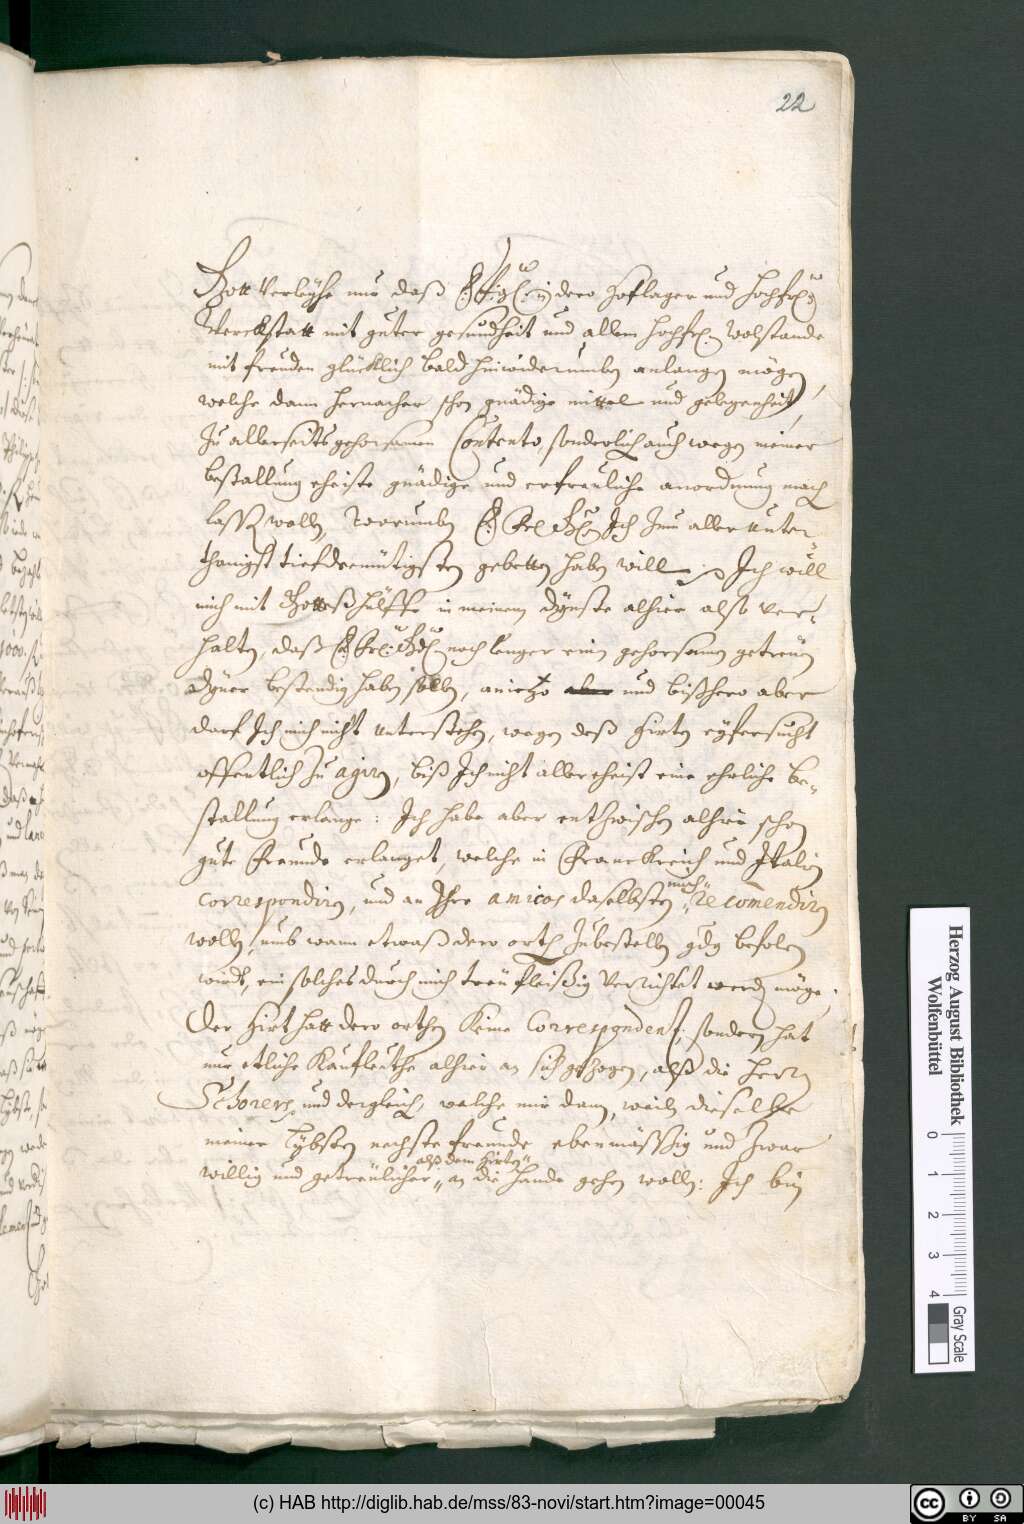 22
Gott verleyhe nur daß E: f: g: in dero Hoflager und hochfr:
Werckstatt mit guter gesundheit und allem hochfr. wolstande
mit freuden glücklich bald hinwiderumben anlangen mögen,
welche dann hernacher schon gnädige mittel und gelegenheit,
zu allerseits gehorsamen Contento, sonderlich auch wegen meiner
bestallung eheiste gnädige und erfreuliche anordnung mach
lassen wollen, Warumben E: Frl: Gn: Ich Inn aller unter-
thänigst tiefdemütigsten gebetten haben will. Ich will
mich mit Gotteß hülffe in meinem dynste alhier also ver-
halten, daß E: Frl: Gd: noch lenger einen gehorsamen getreuen
dyner bestendig haben sollen, anietzo und bißhero aber
darf Ich mich nicht unterstehen, wegen deß Hirten eyfersucht
offentlich zu agirn, biß Ich nicht aller eheist eine ehrliche be-
stallung erlange: Ich habe aber enthzwischen alhier schon
gute Freunde erlanget, welche in Franckreich und Italien
correspondirn, und an Ihre amicos daselbsten mich recomendirn
wollen, umb wann etwaß dero orthen zubestellen gdg befolen
wirdt, ein solches durch mich treufleißig verrichtet werden möge;
Der Hirt hatt dero orthen keine Correspondentz, sondern hat
nur etliche Kaufleuthe alhier an sich gezogen, alß die Herrn
Schorer, und dergleichen, welche mir dann, weiln dieselbe
meiner Lybsten nechste freunde ebenmässig und zwar
willig und getreulicher alß dem Hirten an die Hande gehen wollen: Ich bin
Herzog August Bibliothek
Wolfenbüttel
0 1 2 3 4
Gray Scale
(c) HAB http://diglib.hab.de/mss/83-novi/start.htm?image=00045
cc BY SA